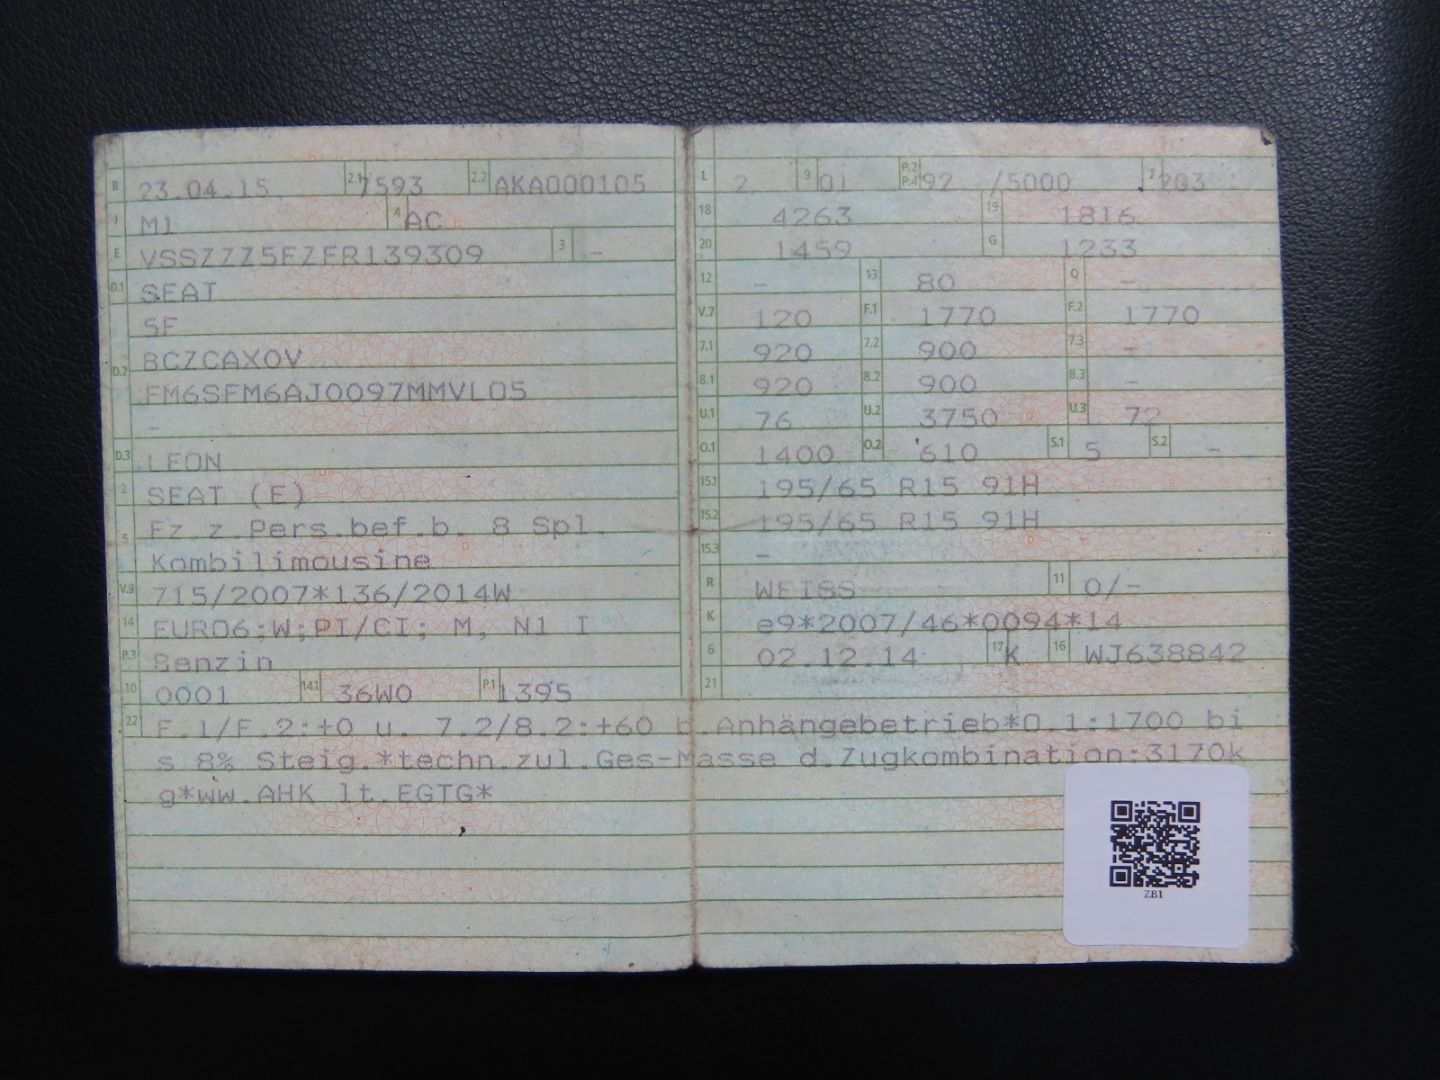 B 23.04.15 2.1 7593 2.2 AKA000105
J M1 4 AC
E VSSZZZ5FZFR139309 3 -
D.1 SEAT
5F
D.2 BCZCAX0V
FM6SFM6AJ0097MMVL05
-
D.3 LEON
2 SEAT (E)
5 Fz.z.Pers.bef.b. 8 Spl.
Kombilimousine
V.9 715/2007*136/2014W
14 EURO6;W;PI/CI; M, N1 I
P.3 Benzin
10 0001 14.1 36W0 P.1 1395
L 2 9 01 P.2 P.4 92 /5000 T 203
18 4263 19 1816
20 1459 G 1233
12 - 13 80 Q -
V.7 120 F.1 1770 F.2 1770
7.1 920 7.2 900 7.3 -
8.1 920 8.2 900 8.3 -
U.1 76 U.2 3750 U.3 72
O.1 1400 O.2 610 S.1 5 S.2 -
15.1 195/65 R15 91H
15.2 195/65 R15 91H
15.3 -
R WEISS 11 0/-
K e9*2007/46*0094*14
6 02.12.14 17 K 16 WJ638842
21
22 F.1/F.2:+0 u. 7.2/8.2:+60 b.Anhängebetrieb*O.1:1700 bi
s 8% Steig.*techn.zul.Ges-Masse d.Zugkombination:3170k
g*ww.AHK lt.EGTG*
ZB1